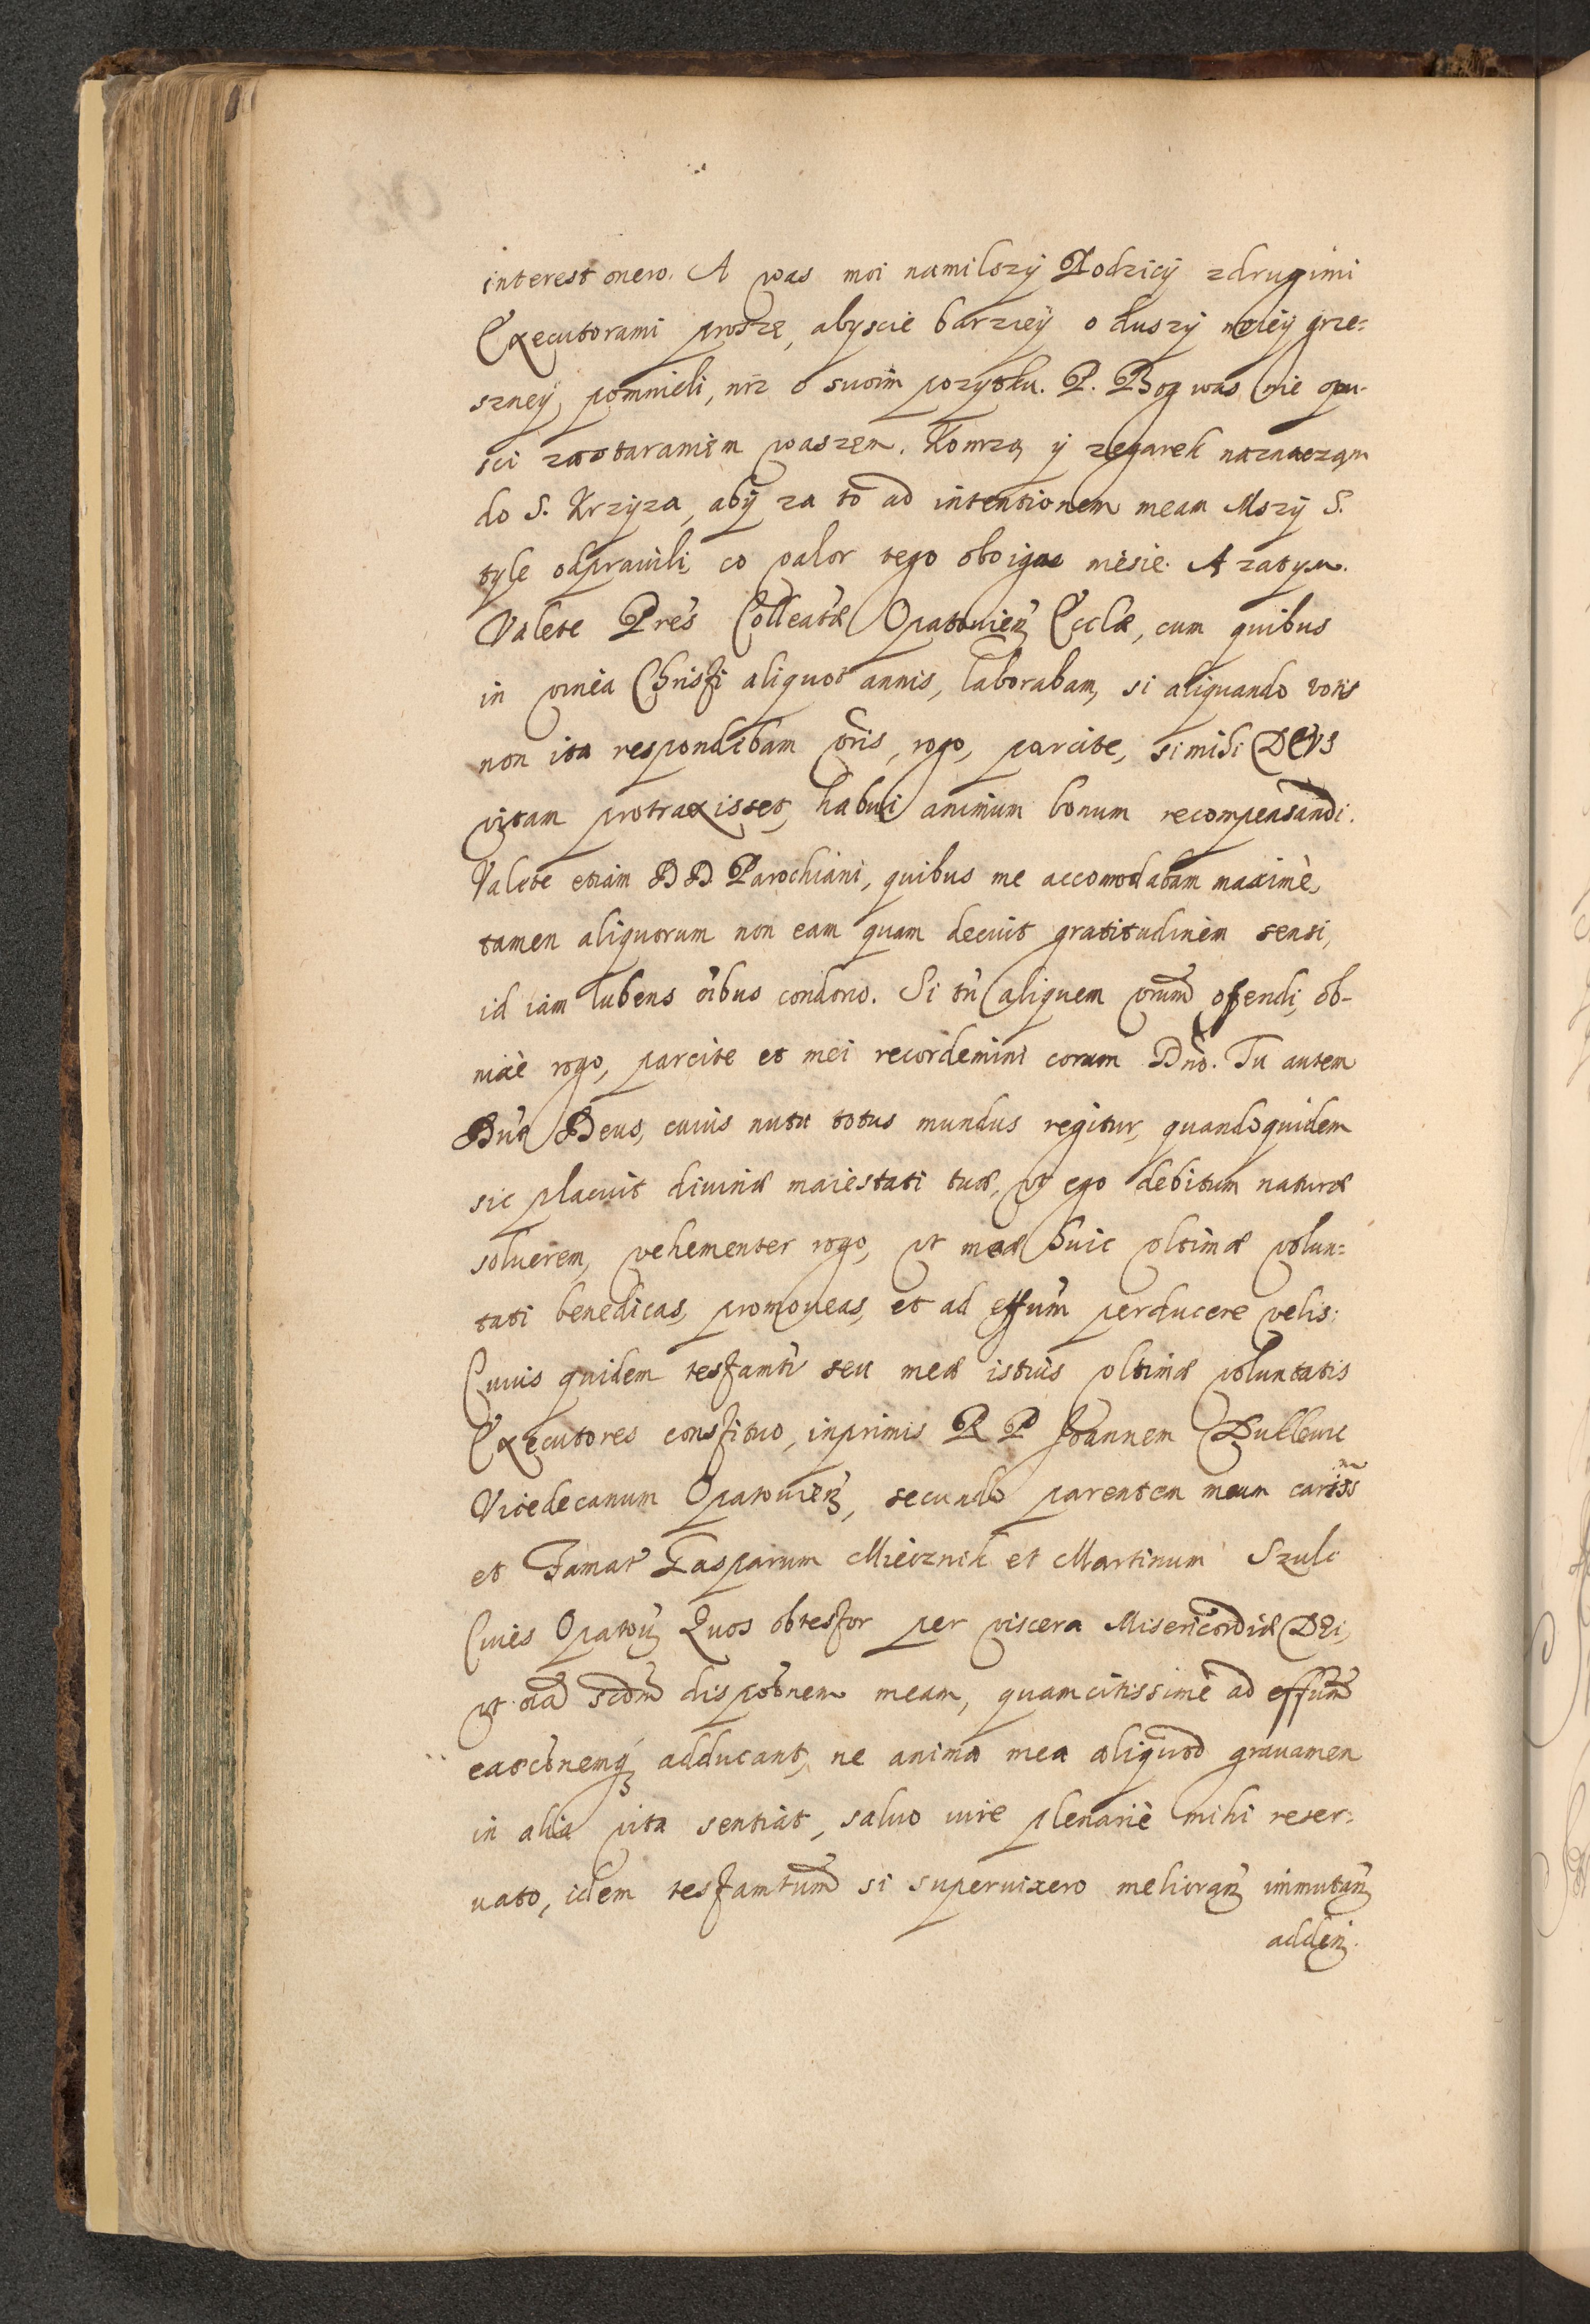 interest onero. A was moi namilszÿ Rodzicÿ zdrugimi
Executorami prosze, abyscie barzieÿ o duszÿ moieÿ grze=
szneÿ pomnieli, niz o swoim pozytku. P. Bog was nie opu-
sci za staraniem waszem. Komzą ÿ zegarek naznaczam
do S. Krzÿza, abÿ za to ad intentionem meam Mszÿ S.
tyle odprawili, co valor tego oboiga niesie. A zatym.
Valete Pres Colleatæ Opatouien Ecclæ, cum quibus
in vinea Christi aliquot annis, laborabam, si aliquando votis
non ita respondebam vris, rogo, parcite, si mihi DEVS
vitam protraxisset, habui animum bonum recompensandi.
Valete etiam DD Parochiani, quibus me accomodabam maximè,
tamen aliquorum non eam quam decuit gratitudinem sensi,
id iam lubens oibus condono. Si tn aliquem vrum ofendi, ob-
nixè rogo, parcite et mei recordemini coram Dno. Tu autem
Dne Deus, cuius nutu totus mundus regitur, quandoquidem
sic placuit diuinæ maiestati tuæ, vt ego debitum naturæ
soluerem, vehementer rogo, vt meæ huic vltimæ volun=
tati benedicas, promoueas, et ad effum perducere velis:
Cuius quidem testamti seu meæ istius vltimæ voluntatis
Executores constituo, inprimis R P Joannem
Vicedecanum Opatouien, secundo parentem meum cariss
et Famat Gasparum Miecznik et Martinum Szulc
Ciues Opatou Quos obtestor per viscera Misericordiæ DEi,
vt oia scdm dispobnem meam, quamcitissimè ad effum
adducant, ne anima mea aliquod grauamen
in alia vita sentiat, saluo iure plenariè mihi reser=
uato, idem testamtum si superuixero melioran immutan
adden.